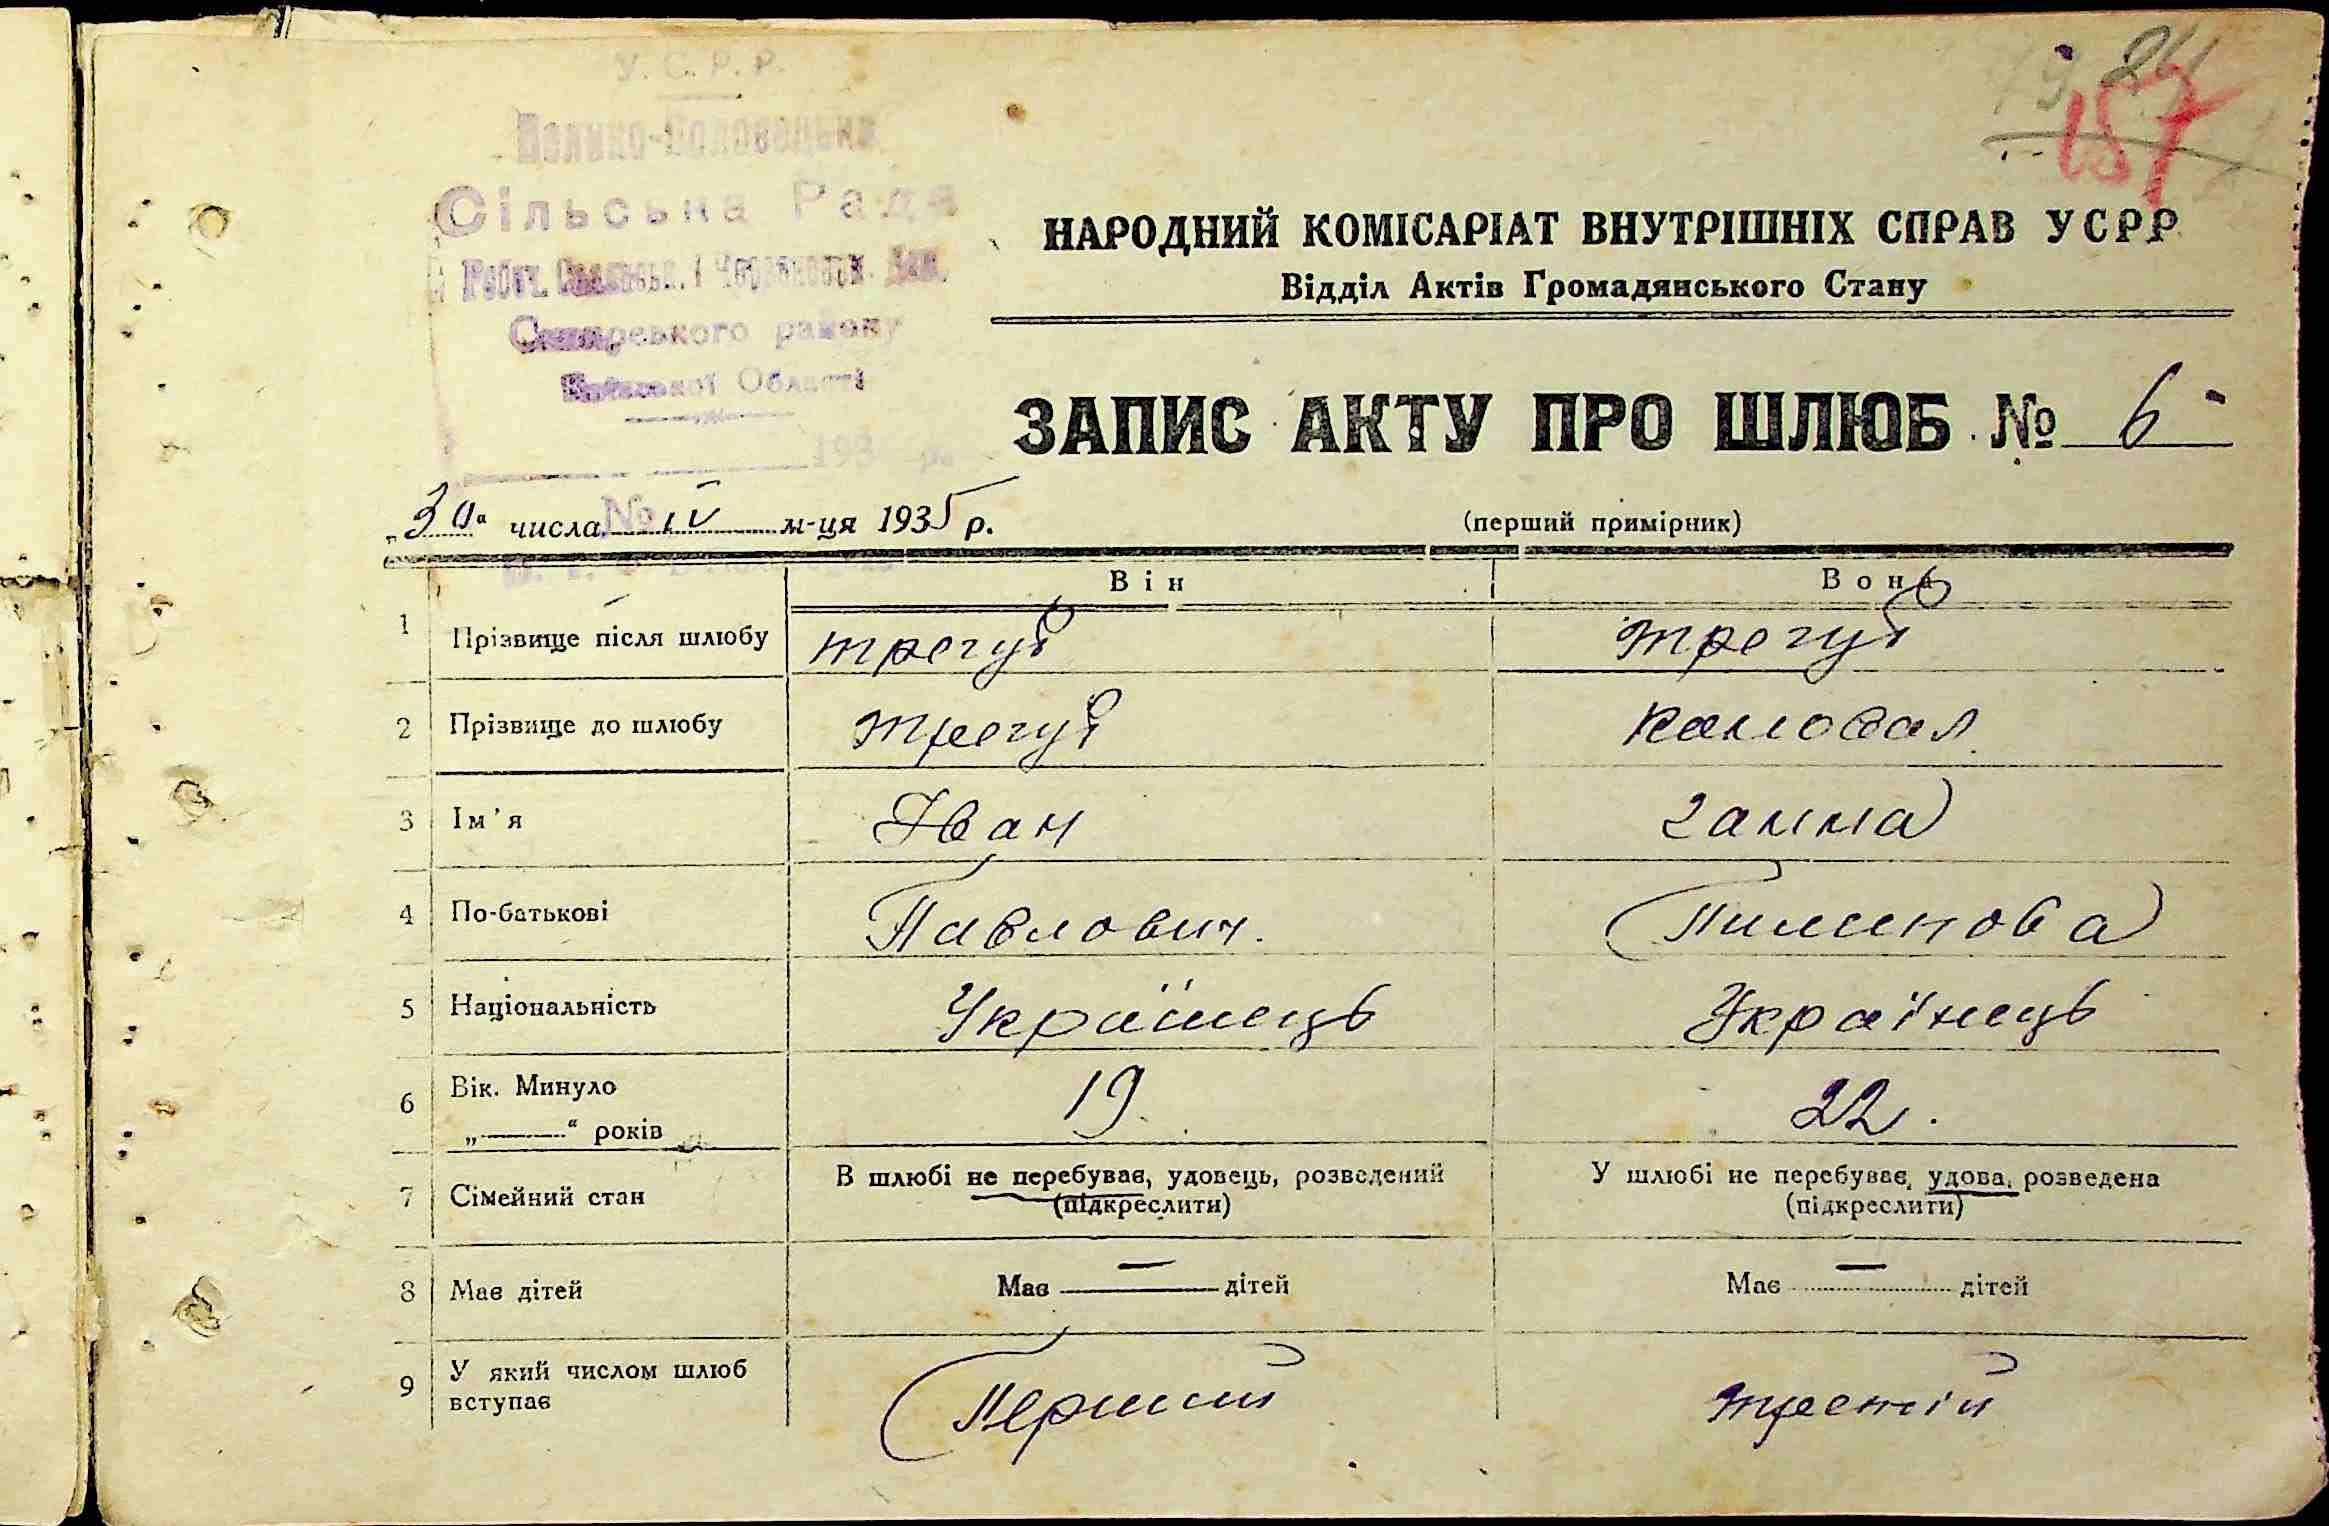 У. С. Р. Р.
Сільська Рада
району
Області
193
157
НАРОДНИЙ КОМІСАРІАТ ВНУТРІШНІХ СПРАВ УСРР
Відділ Актів Громадянського Стану
ЗАПИС АКТУ ПРО ШЛЮБ № 6
„30“ числа № IV м-ця 1935 р.
(перший примірник)
Він Вона
1 Прізвище після шлюбу Трегуб Трегуб
2 Прізвище до шлюбу Трегуб Коновал
3 Ім'я Іван Ганна
4 По-батькові Павлович. Пименова
5 Національність Українець Українець
6 Вік. Минуло „——“ років 19. 22.
7 Сімейний стан В шлюбі не перебуває, удовець, розведений У шлюбі не перебуває, удова, розведена
(підкреслити) (підкреслити)
8 Має дітей Має — дітей Має — дітей
9 У який числом шлюб вступає Перший третій